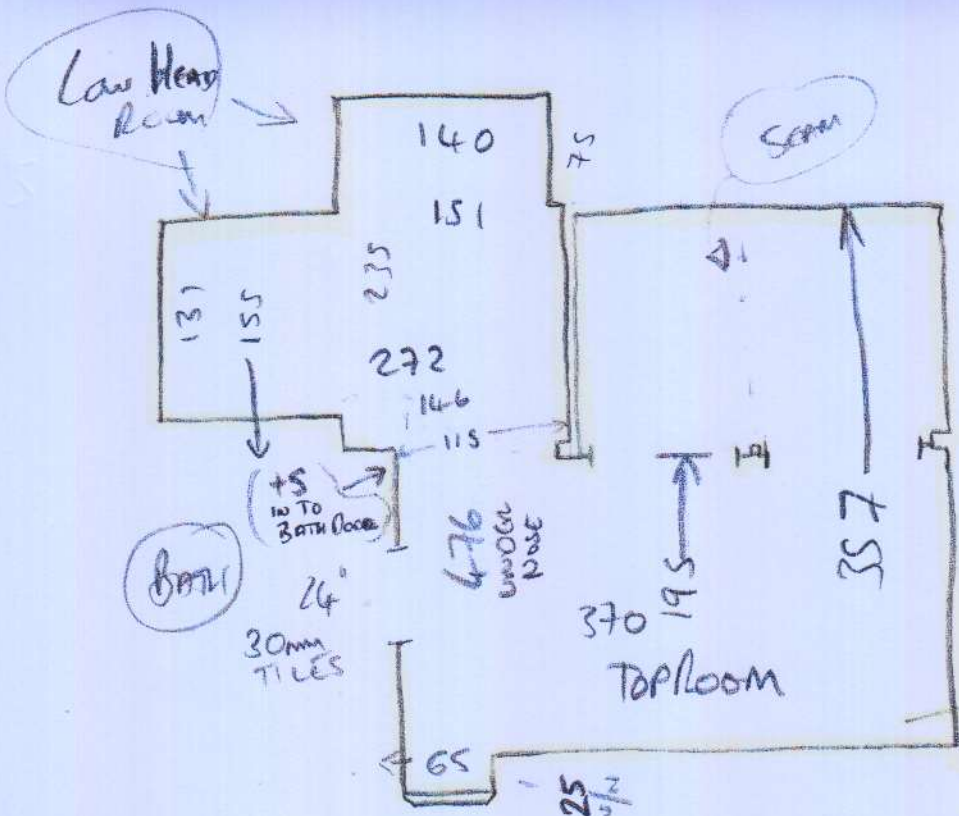 Low HEAD
ROOM
140
75
SEAM
151
131
155
235
272
146
115
+5
IN TO
BATH DOOR
BATH
24"
30mm
TILES
476
UNDER
NOSE
370
195
357
TOP ROOM
65
25